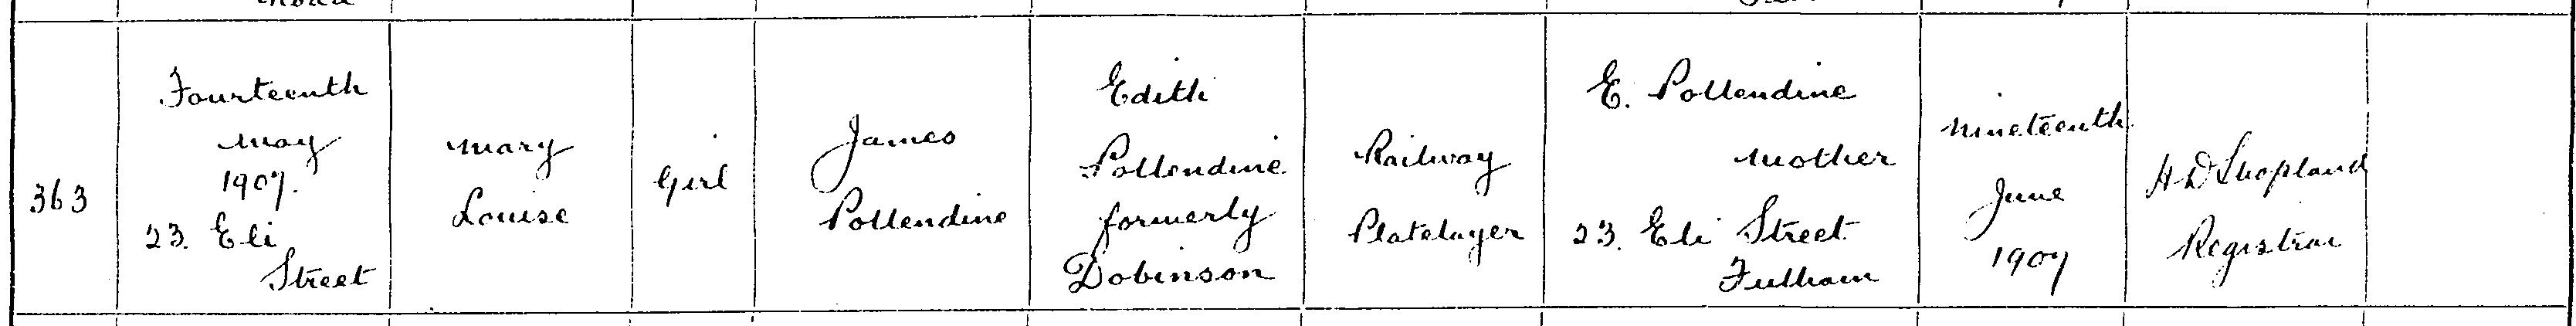 363
Fourteenth
May
1907.
23. Eli
Street
Mary
Louise
Girl
James
Pollendine
Edith
Pollendine
formerly
Dobinson
Railway
Platelayer
E. Pollendine
Mother
23. Eli Street
Fulham
Nineteenth
June
1907
H D Shopland
Registrar